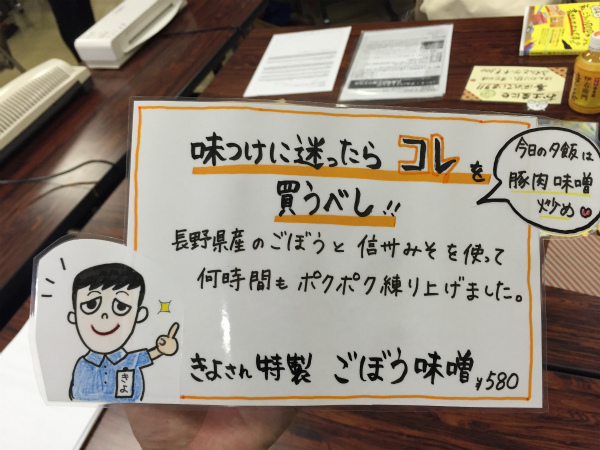 味つけに迷ったら コレを
買うべし!!
今日の夕飯は
豚肉味噌
炒め
長野県産のごぼうと信州みそを使って
何時間もポクポク練り上げました。
きよさん特製 ごぼう味噌 ¥580
きよ